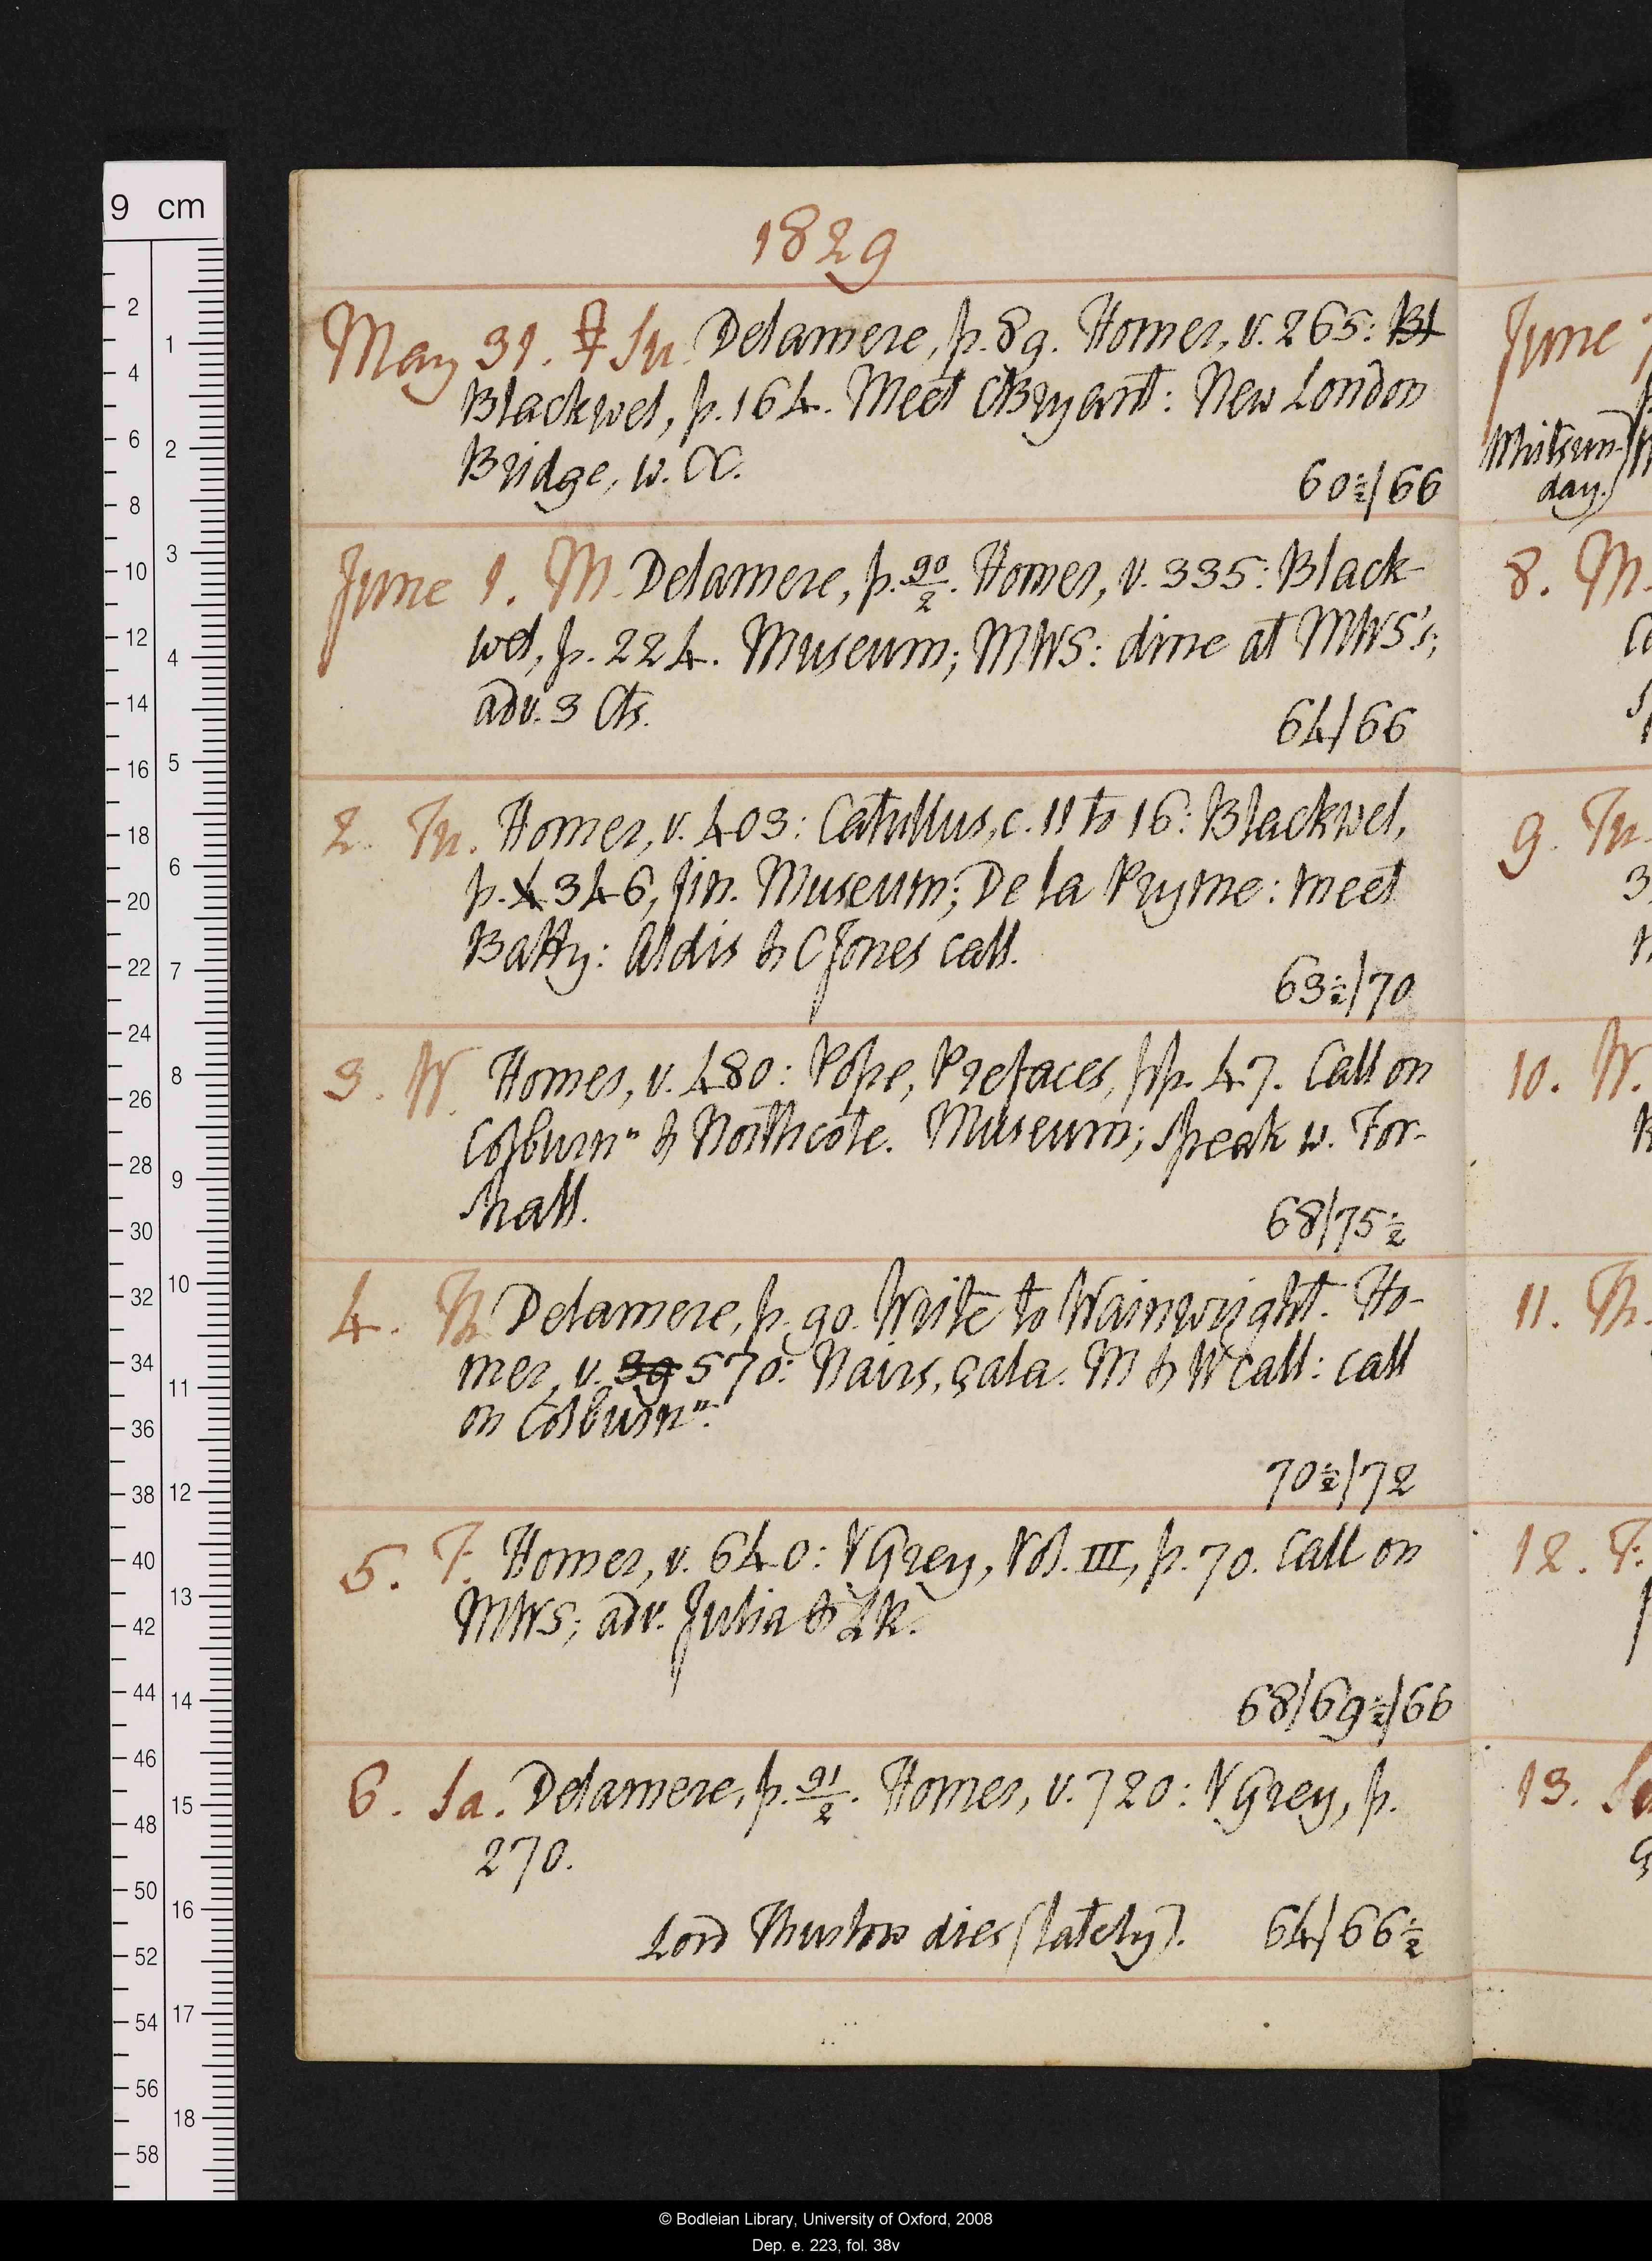 1829
May 31. Su. Delamere, p. 89. Homer, v. 265: Bl
Blackwel, p. 164. Meet CBryant: New London
Bridge, w. CC.
60½/66
June 1. M. Delamere, p. 90/2. Homer, v. 335: Black-
wel, p. 224. Museum; MWS: dine at MWS's;
adv. 3 Cts.
64/66
2. Tu. Homer, v. 403: Catullus, c. 11 to 16: Blackwel,
p. 346, fin. Museum; De la Pryme: meet
Batty: Aldis & CJones call.
63½/70
3. W. Homer, v. 480: Pope, Prefaces, pp. 47. Call on
Colburn n & Northcote. Museum; speak w. For-
shall.
68/75½
4. Th. Delamere, p. 90. Write to Wainwright. Ho-
mer, v. 39 570: Nairs, çala. M & W call: call
on Colburn n.
70½/72
5. F. Homer, v. 640: VGrey, Vol. III, p. 70. Call on
MWS; adv. Julia & LK.
68/69½/66
6. Sa. Delamere, p. 91/2. Homer, v. 720: VGrey, p.
270.
Lord Thurlow dies (lately). 64/66½
June
Whitsun-
day.
8. M.
9. Tu.
10. W.
11. Th.
12. F.
13. Sa
9 cm
2
4
6
8
10
12
14
16
18
20
22
24
26
28
30
32
34
36
38
40
42
44
46
48
50
52
54
56
58
1
2
3
4
5
6
7
8
9
10
11
12
13
14
15
16
17
18
© Bodleian Library, University of Oxford, 2008
Dep. e. 223, fol. 38v